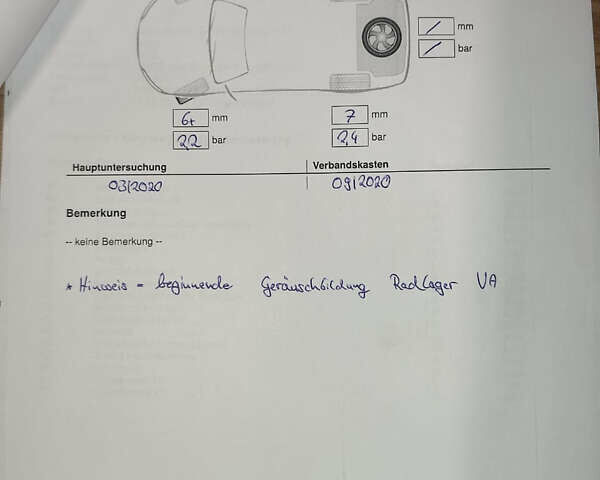 / mm
/ bar
6+ mm 7 mm
2,2 bar 2,4 bar
Hauptuntersuchung Verbandskasten
03/2020 09/2020
Bemerkung
-- keine Bemerkung --
* Hinweis = beginnende Geräuschbildung Radlager VA